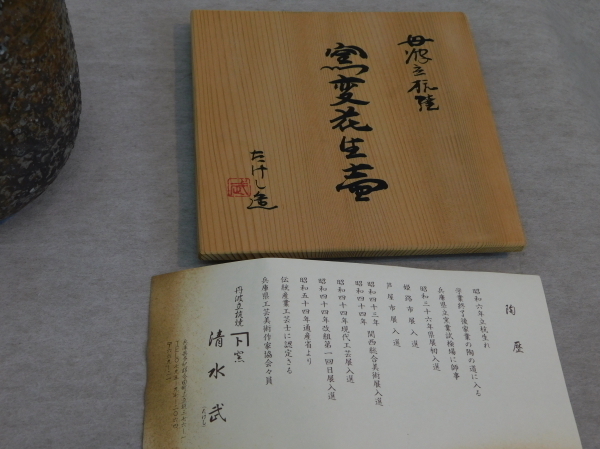 丹波立杭焼
窯変花生壷
たけし造
武
陶歴
昭和六年立杭生れ
学業終了後家業の陶の道に入る
兵庫県立窯業試験場に師事
昭和三十六年県展初入選
姫路市展入選
芦屋市展入選
昭和四十三年関西総合美術展入選
昭和四十四年
昭和四十四年現代工芸展入選
昭和四十四年改組第一回日展入選
昭和五十四年通産省より
伝統産業工芸士に認定さる
兵庫県工芸美術作家協会々員
丹波立杭焼
窯
清水武
たけし